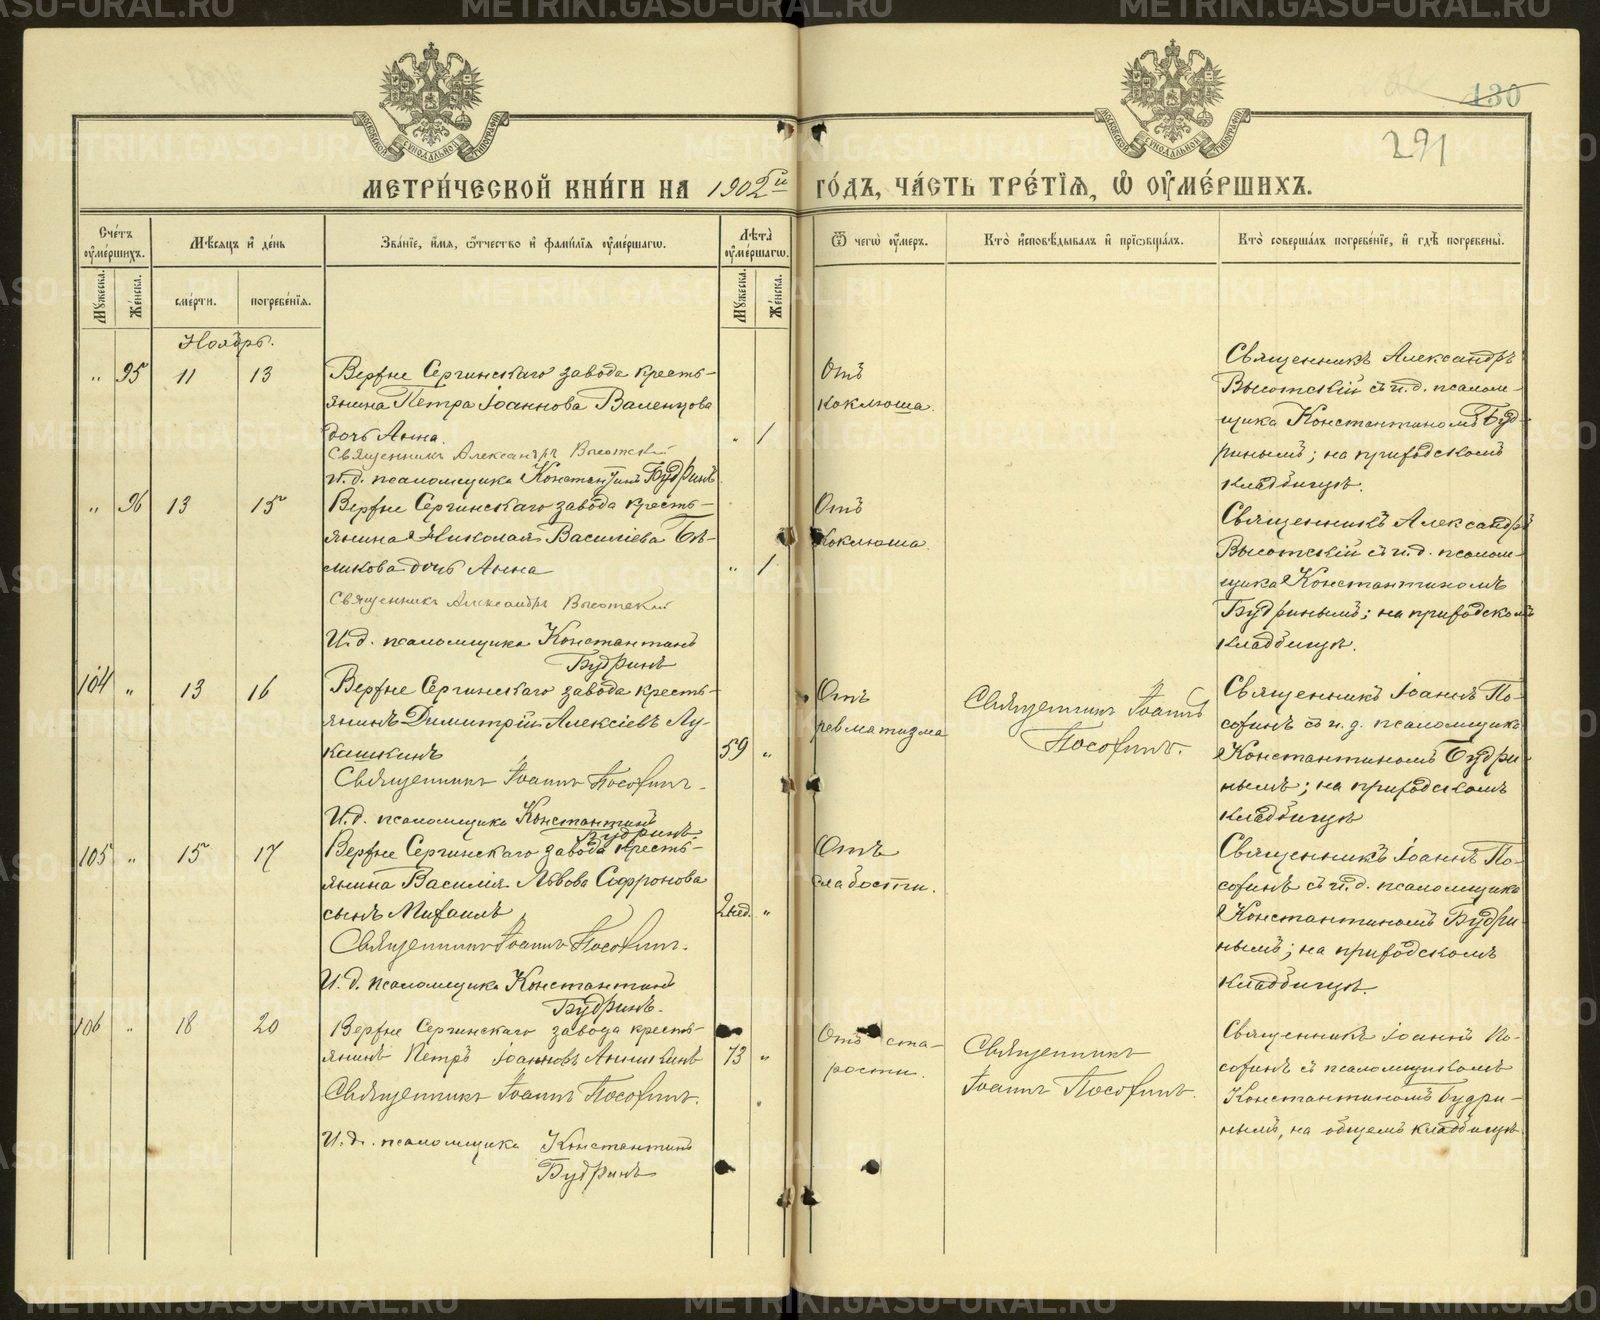 130
291
МЕТРИ́ЧЕСКОЙ КНИ́ГИ НА 1902й ГО́ДЪ, ЧА́СТЬ ТРЕ́ТІѦ, Ѡ҆ ОУ҆МЕ́РШИХЪ.
Сче́тъ оу҆ме́ршихъ.
Мѣ́сяцъ и҆ де́нь
Зва́ніе, и҆́мя, ѻ҆́тчество и҆ фами́лія оу҆ме́ршагѡ.
Лѣ́та оу҆ме́ршагѡ.
Ѿ чегѡ̀ оу҆́меръ.
Кто̀ и҆сповѣ́дывалъ и҆ прїѡбща́лъ.
Кто̀ соверша́лъ погребе́ніе, и҆ гдѣ̀ погребены̀.
Му́жеска.
Же́нска.
сме́рти.
погребе́нія.
Му́жеска.
Же́нска.
Ноябрь.
" 95 11 13
Верхне Сергинскаго завода кресть-
янина Петра Іоаннова Валенцова
дочь Анна.
" 1
Священникъ Александръ Высотскій
И.д. псаломщика Константинъ Будринъ
Отъ
коклюша.
Священникъ Александръ
Высотскій съ и.д. псалом-
щика Константиномъ Буд-
ринымъ; на приходскомъ
кладбищѣ.
" 96 13 15
Верхне Сергинскаго завода кресть-
янина Николая Василіева Бѣ-
ликова дочь Анна
" 1
Священникъ Александръ Высотскій
И.д. псаломщика Константинъ
Будринъ
Отъ
Коклюша.
Священникъ Александръ
Высотскій съ и.д. псалом-
щика Константиномъ
Будринымъ; на приходскомъ
кладбищѣ.
104 " 13 16
Верхне Сергинскаго завода кресть-
янинъ Димитрій Алексіевъ Лу-
кашкинъ
59 "
Священникъ Іоаннъ Посохинъ.
И.д. псаломщика Константинъ
Будринъ.
Отъ
ревматизма
Священникъ Іоаннъ
Посохинъ.
Священникъ Іоаннъ По-
сохинъ съ и.д. псаломщика
Константиномъ Будри-
нымъ; на приходскомъ
кладбищѣ
105 " 15 17
Верхне Сергинскаго завода кресть-
янина Василія Львова Софронова
сынъ Михаилъ
2 нед. "
Священникъ Іоаннъ Посохинъ.
И.д. псаломщика Константинъ
Будринъ.
Отъ
слабости.
Священникъ Іоаннъ По-
сохинъ съ и.д. псаломщика
Константиномъ Будри-
нымъ; на приходскомъ
кладбищѣ.
106 " 18 20
Верхне Сергинскаго завода кресть-
янинъ Петръ Іоанновъ
73 "
Священникъ Іоаннъ Посохинъ.
И.д. псаломщика Константинъ
Будринъ
Отъ ста-
рости.
Священникъ
Іоаннъ Посохинъ.
Священникъ Іоаннъ По-
сохинъ съ псаломщикомъ
Константиномъ Будри-
нымъ, на общемъ кладбищѣ
METRIKI.GASO-URAL.RU